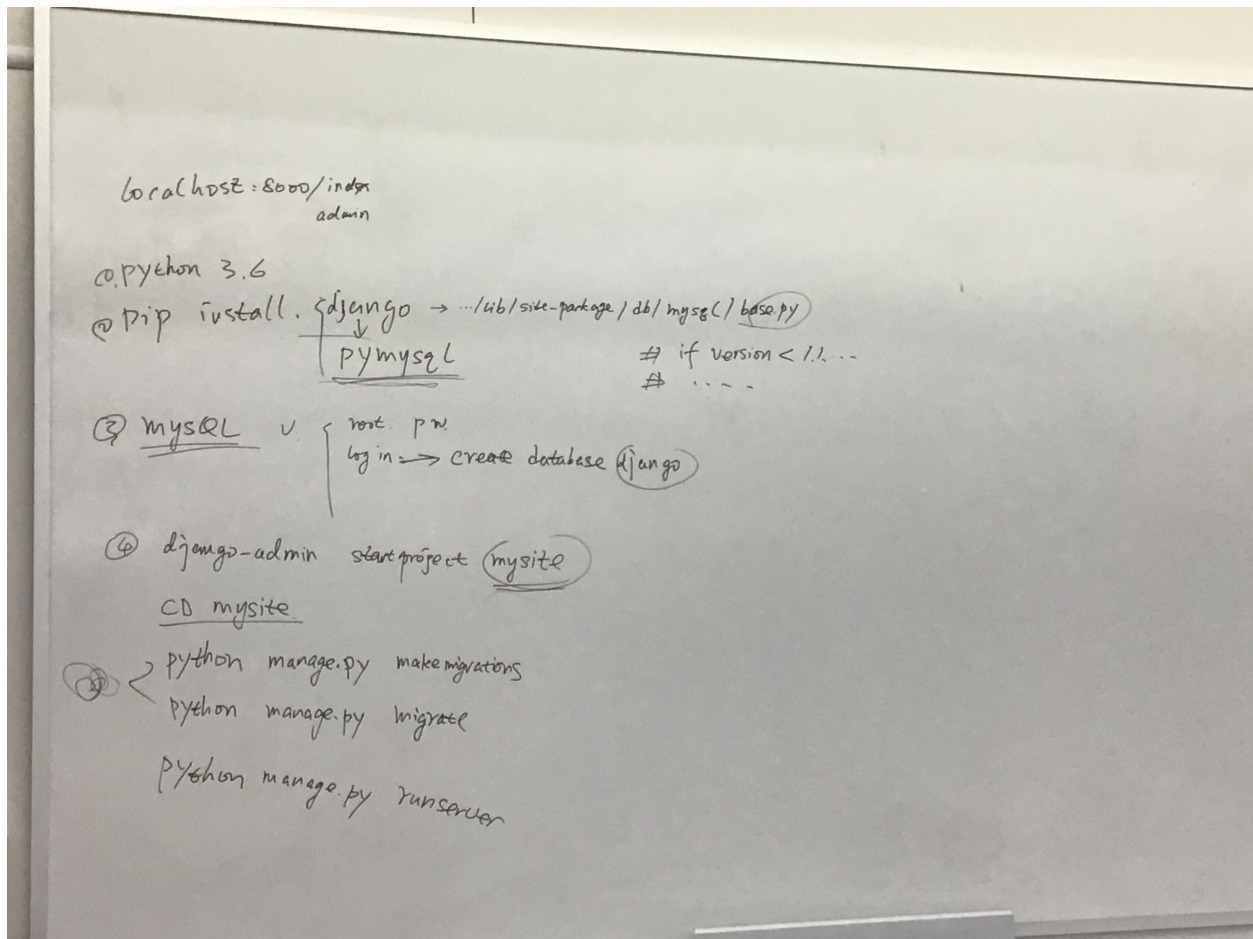 localhost:8000/index
admin
①.python 3.6
② pip install. django → .../lib/site-package/db/mysql/base.py
↓
pymysql
# if version < 1.1....
# .....
③ mySQL ∪ root. pw.
log in → create database django
④ django-admin startproject mysite
CD mysite
python manage.py makemigrations
python manage.py migrate
python manage.py runserver